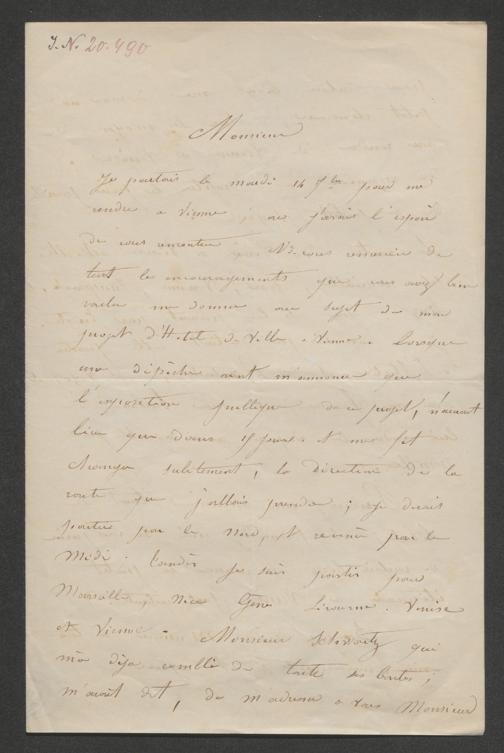 I.N. 20.490
Monsieur
Je partais le mardi 14 7bre pour me
rendre a Vienne ou j'avais l'espoir
de vous rencontrer vous remercier de
tout le encouragements que vous avez bien
voulu me donner au sujet de mon
projet d'Hotel de Ville a Vienne. Lorsque
une dépêche vint m'annoncer que
l'exposition publique de ce projet, n'aurait
lieu que dans 15 jours. et me fit
changer subitement, la direction de la
route que j'allais prendre ; je devais
partir par le Nord, et revenir par le
Midi. je suis parti pour
Marseille Nice Gêne Livourne. Venise
et Vienne - Monsieur qui
m'a déja comblé de toute ses bontés ;
m'avait dit, de m'adresser a vous Monsieur